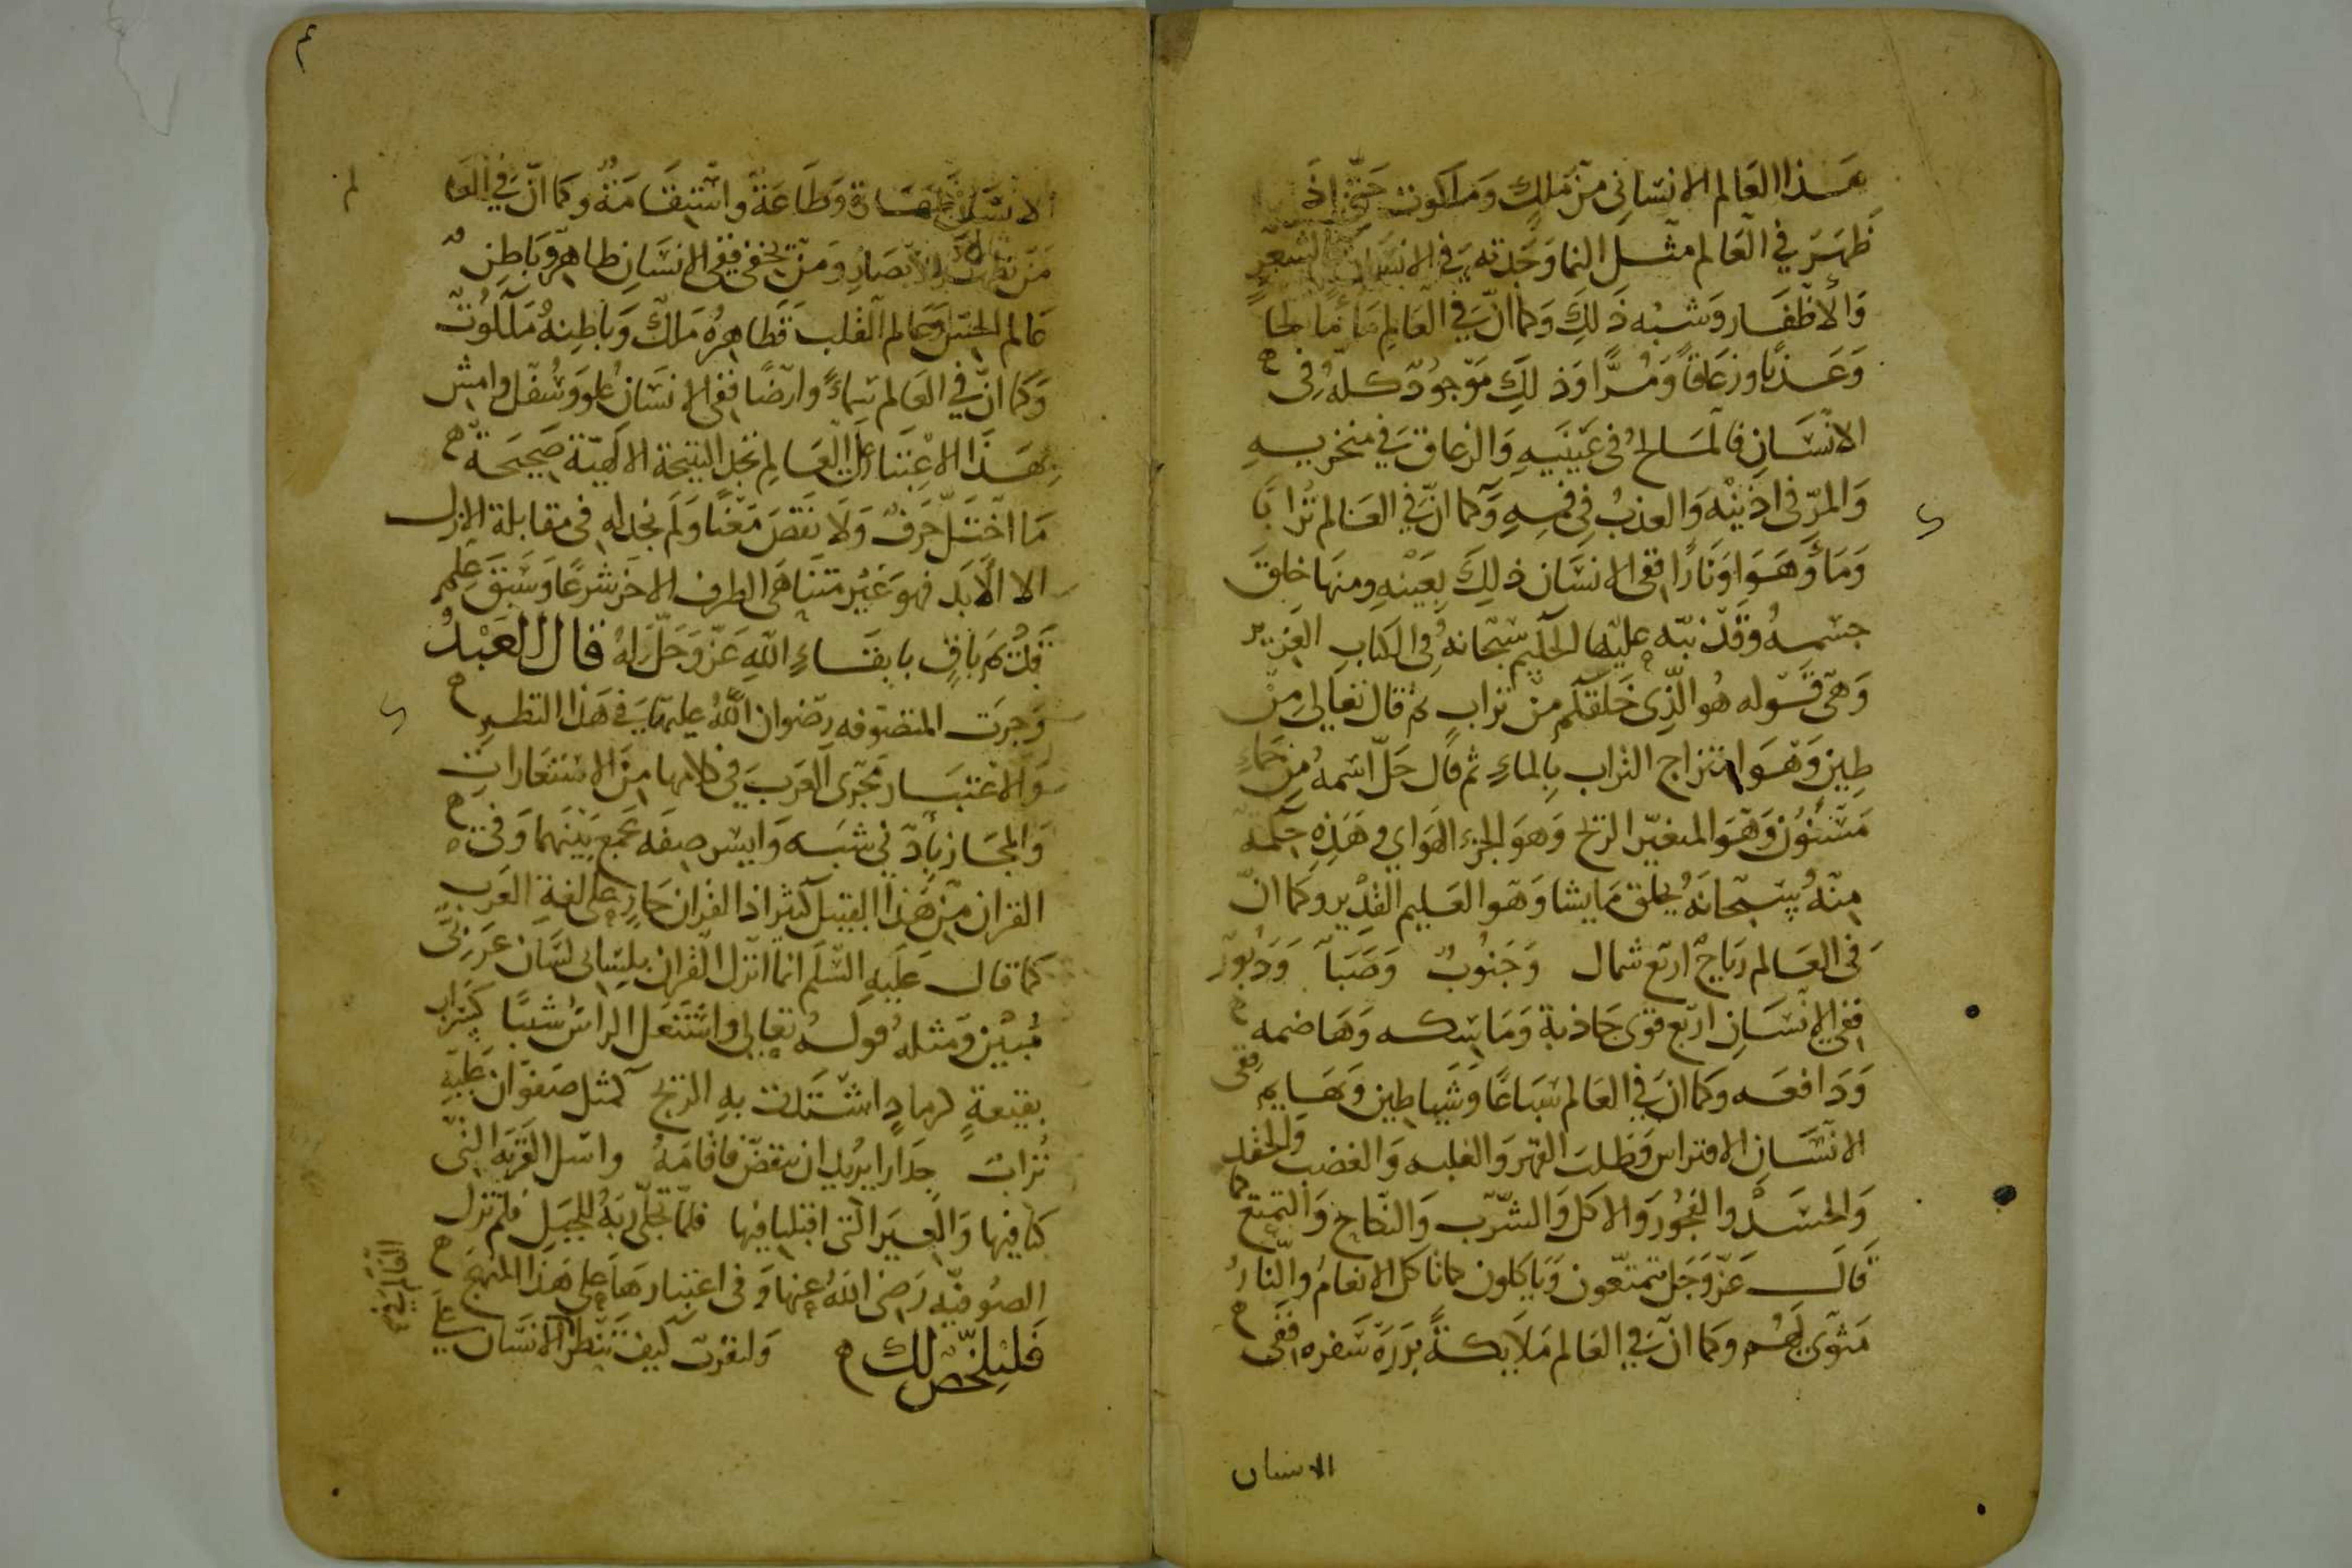 هذا العالم الانساني من ملك وملكوت حتى اذا
ظهر في العالم مثل النما وجدته في الانسان كالشعر
والاظفار وشبه ذلك وكما ان في العالم ماء مالحا
وعذبا وزعاقا ومرا وذلك موجود كله في
الانسان فالمسالح في عينيه والزعاق في منخريه
والمر في اذنيه والعذب في فمه وكما ان في العالم ترابا
وماء وهواء ونارا ففي الانسان ذلك بعينه ومنها خلق
جسمه وقد نبه عليها الحكيم سبحانه في الكتاب العزيز
وهي قوله هو الذي خلقكم من تراب ثم قال تعالى من
طين وهو امتزاج التراب بالماء ثم قال جل اسمه من حماء
مسنون وهو المتغير الريح وهو الجزء الهواي وهذه حكمة
منه سبحانه يخلق ما يشا وهو العليم القدير وكما ان
في العالم رياح اربع شمال وجنوب وصبا ودبور
ففي الانسان اربع قوى جاذبة وماسكه وهاضمه
ودافعه وكما ان في العالم سباعا وشياطين وبهايم ففي
الانسان الافتراس وطلب القهر والغلبه والغضب والحقد
والحسد والفجور والاكل والشرب والنكاح والتمتع كما
قال عز وجل يتمتعون وياكلون كما تاكل الانعام والنار
مثوى لهم وكما ان في العالم ملايكة بررة سفره ففي
الانسان
٤
الانسان طهارة وطاعة واستقامة وكما ان في العالم
من يظهر للابصار ومن يخفى ففي الانسان ظاهر وباطن
عالم الحس وعالم القلب فظاهره ملك وباطنه ملكوت
وكما ان في العالم سماء وارضا ففي الانسان علو وسفل وامش
بهذا الاعتبار على العالم تجد النتيجة الالهية صحيحة
ما اختل حرف ولا نقص معنا ولم نجد له في مقابلة الازل
الا الابد فهو غير متناهي الطرف الاخر شرعا وسبق علم
فلذلك هو باق بابقاء الله عز وجل له قال العبد
وجرت المتصوفه رضوان الله عليهم في هذا النظر
والاعتبار مجرى العرب في كلامها من الاستعارات
والمجاز بادنى شبه وايسر صفه تجمع بينهما وفي
القران من هذا القبيل كثير اذ القران جار على لغة العرب
كما قال عليه السلم انما انزل القران بلساني لسان عربي
مبين ومثله قوله تعالى واشتعل الراس شيبا كسراب
بقيعة كرماد اشتدت به الريح كمثل صفوان عليه
تراب جدارا يريد ان ينقض فاقامه واسل القرية التي
كنا فيها والعير التي اقبلنا فيها فلما تجلى ربه للجبل فلم تزل
الصوفيه رضي الله عنها وفي اعتبارها على هذا المنهج
فليلخص لك ولنقرب كيف تنظر الانسان على